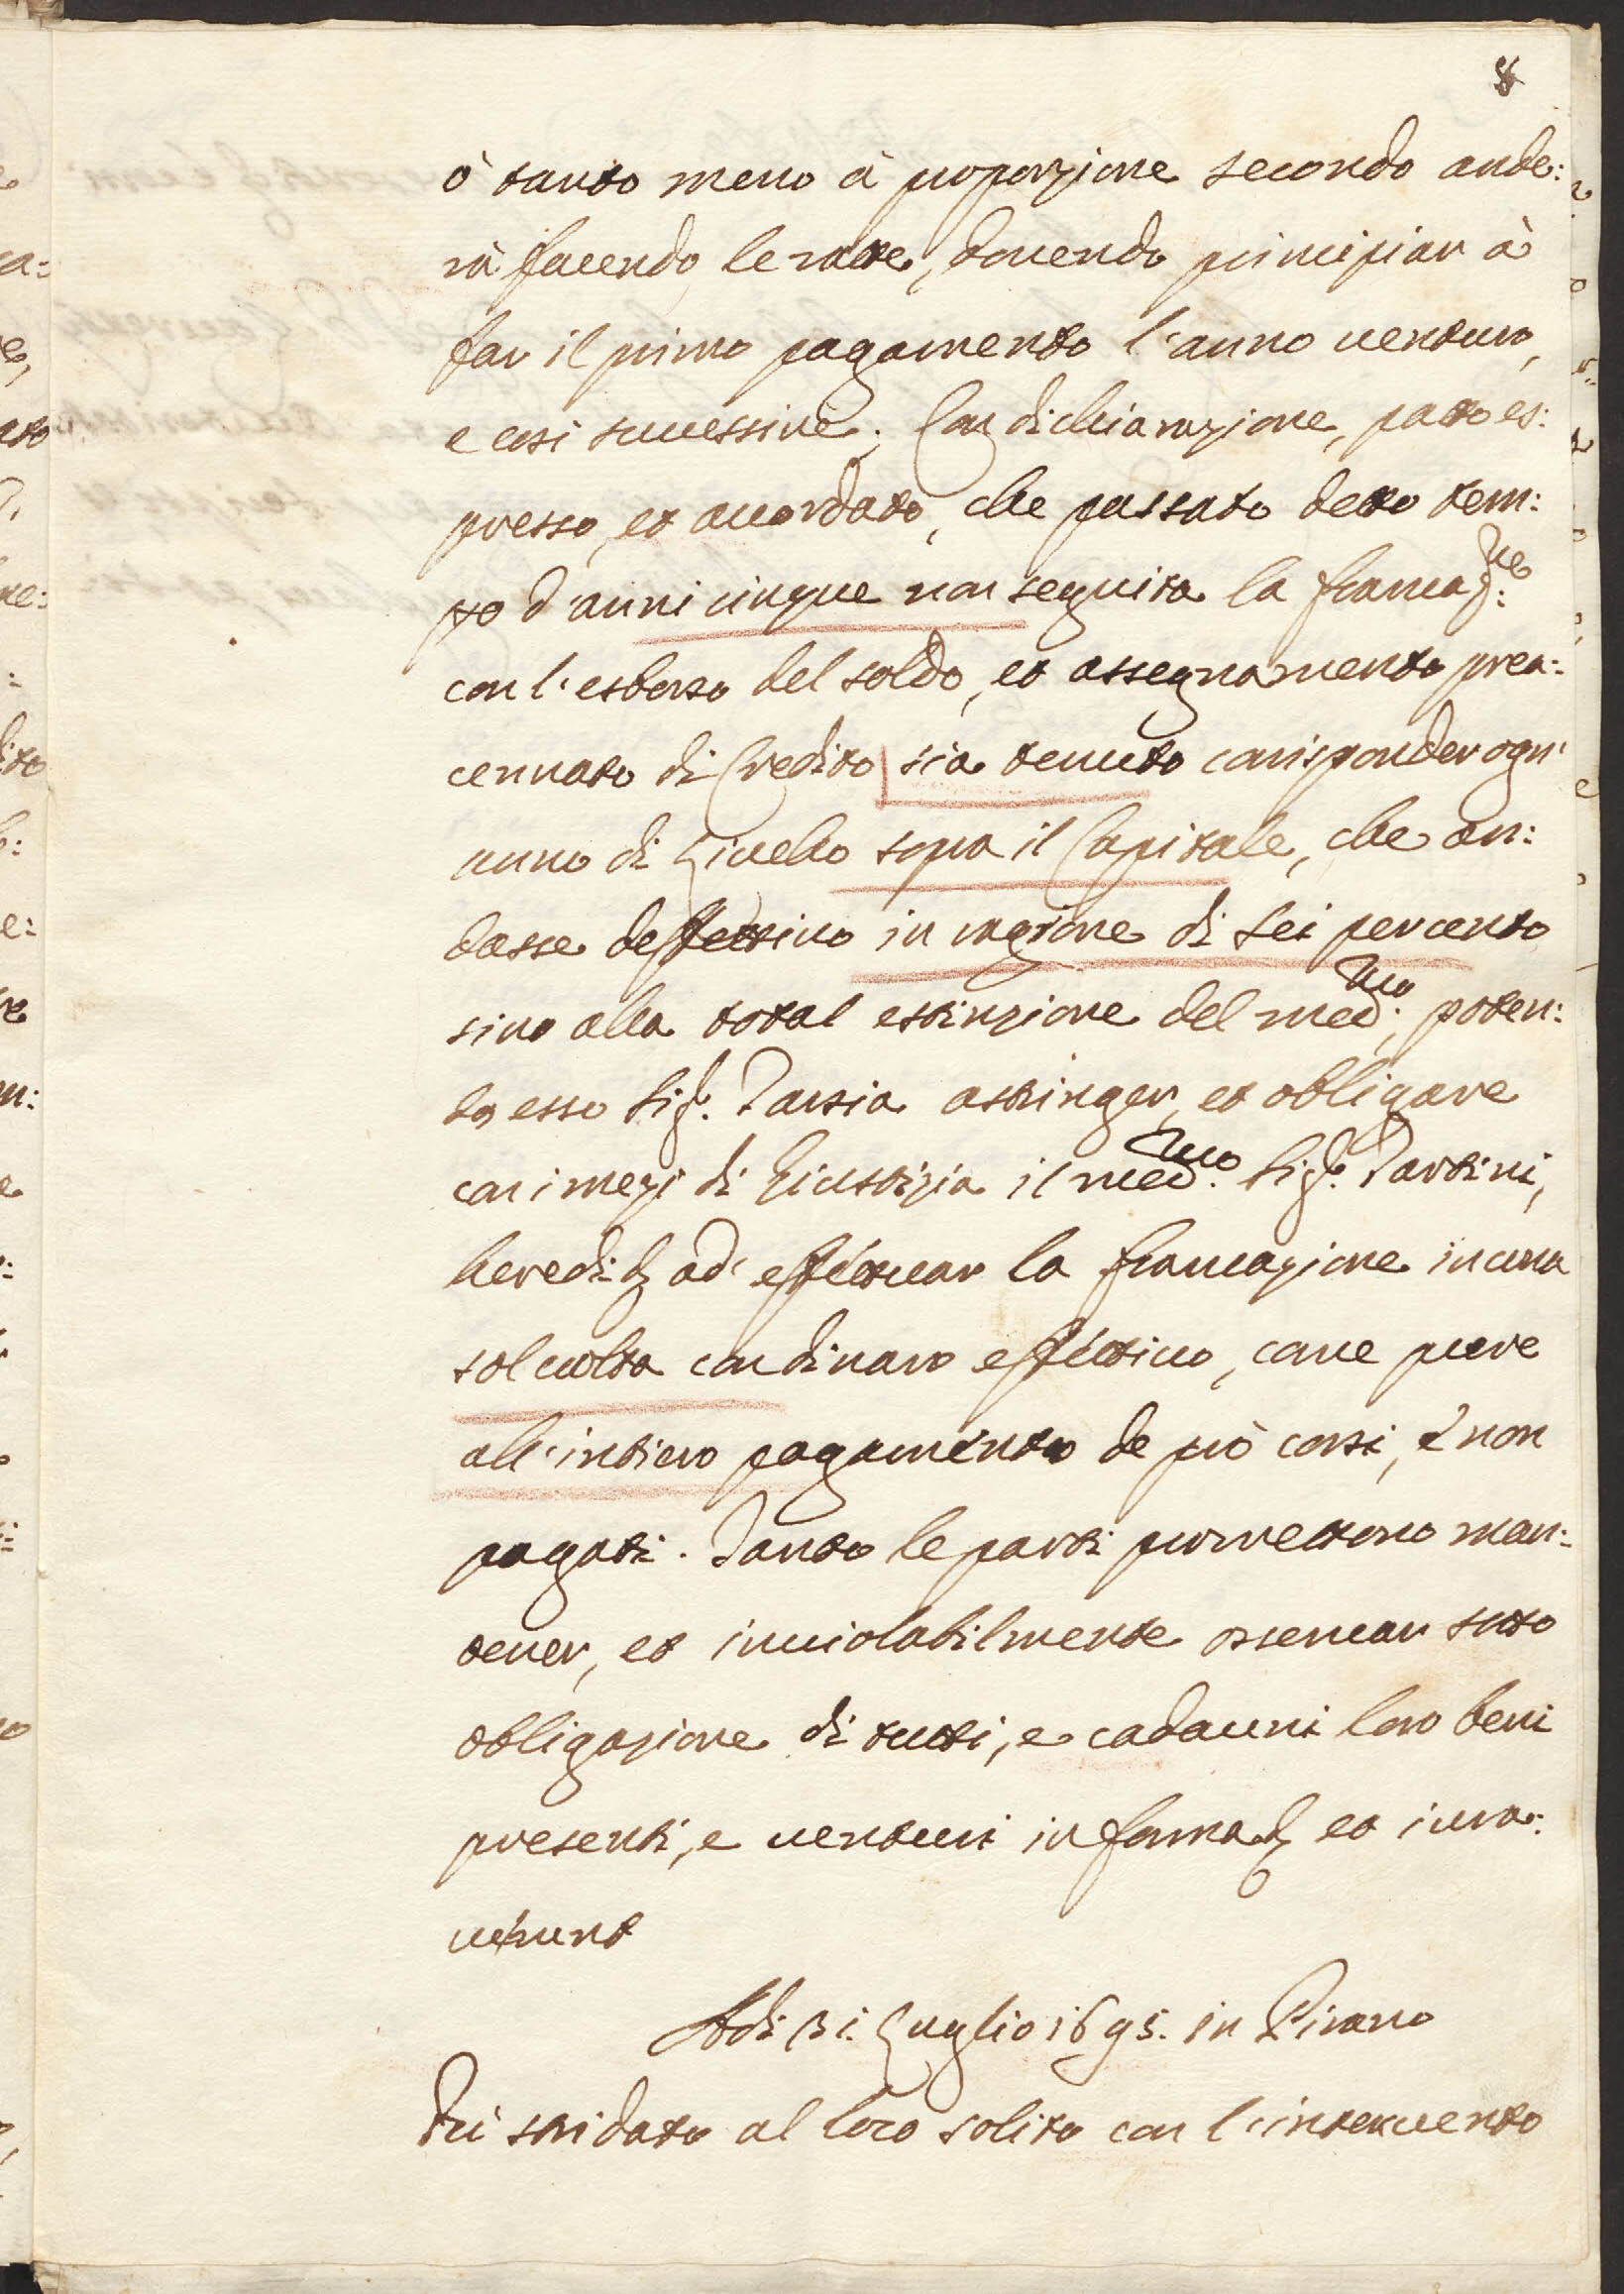 8
ò tanto meno à proporzione secondo ande:
rà facendo le ratte, douendo principiar à
far il primo pagamento l'anno uenturo,
e così successiuè. Con dichiarazione, patto es:
presso, et accordato, che passato detto tem:
po d'anni cinque non seguita la francaz:ne
con l'esborso del soldo, et assegnamento prea:
cennato di Credito sia tenuto corrisponder ogn'
anno di Liuello sopra il Capitale, che an:
dasse deffettiuo in ragione di sei per cento
sino alla total estinzione del med:mo, poten:
do esso Sig.r Tarsia astringer, et obligare
con i mezi di Giustizia il med:mo Sig.r Tartini,
heredi ad' effettuar la francazione in una
sol uolta con dinaro effettiuo, come pure
all'intiero pagamento de prò corsi, è non
pagati. Tanto le parti promettono man:
tener, et inuiolabilmente osseruar sotto
obligazione di tutti, e cadauni loro beni
presenti, e uenturi in forma et iura:
uerunt
Adi 31. Luglio 1695. in Pirano
Fù stridato al loco solito con l'interuento